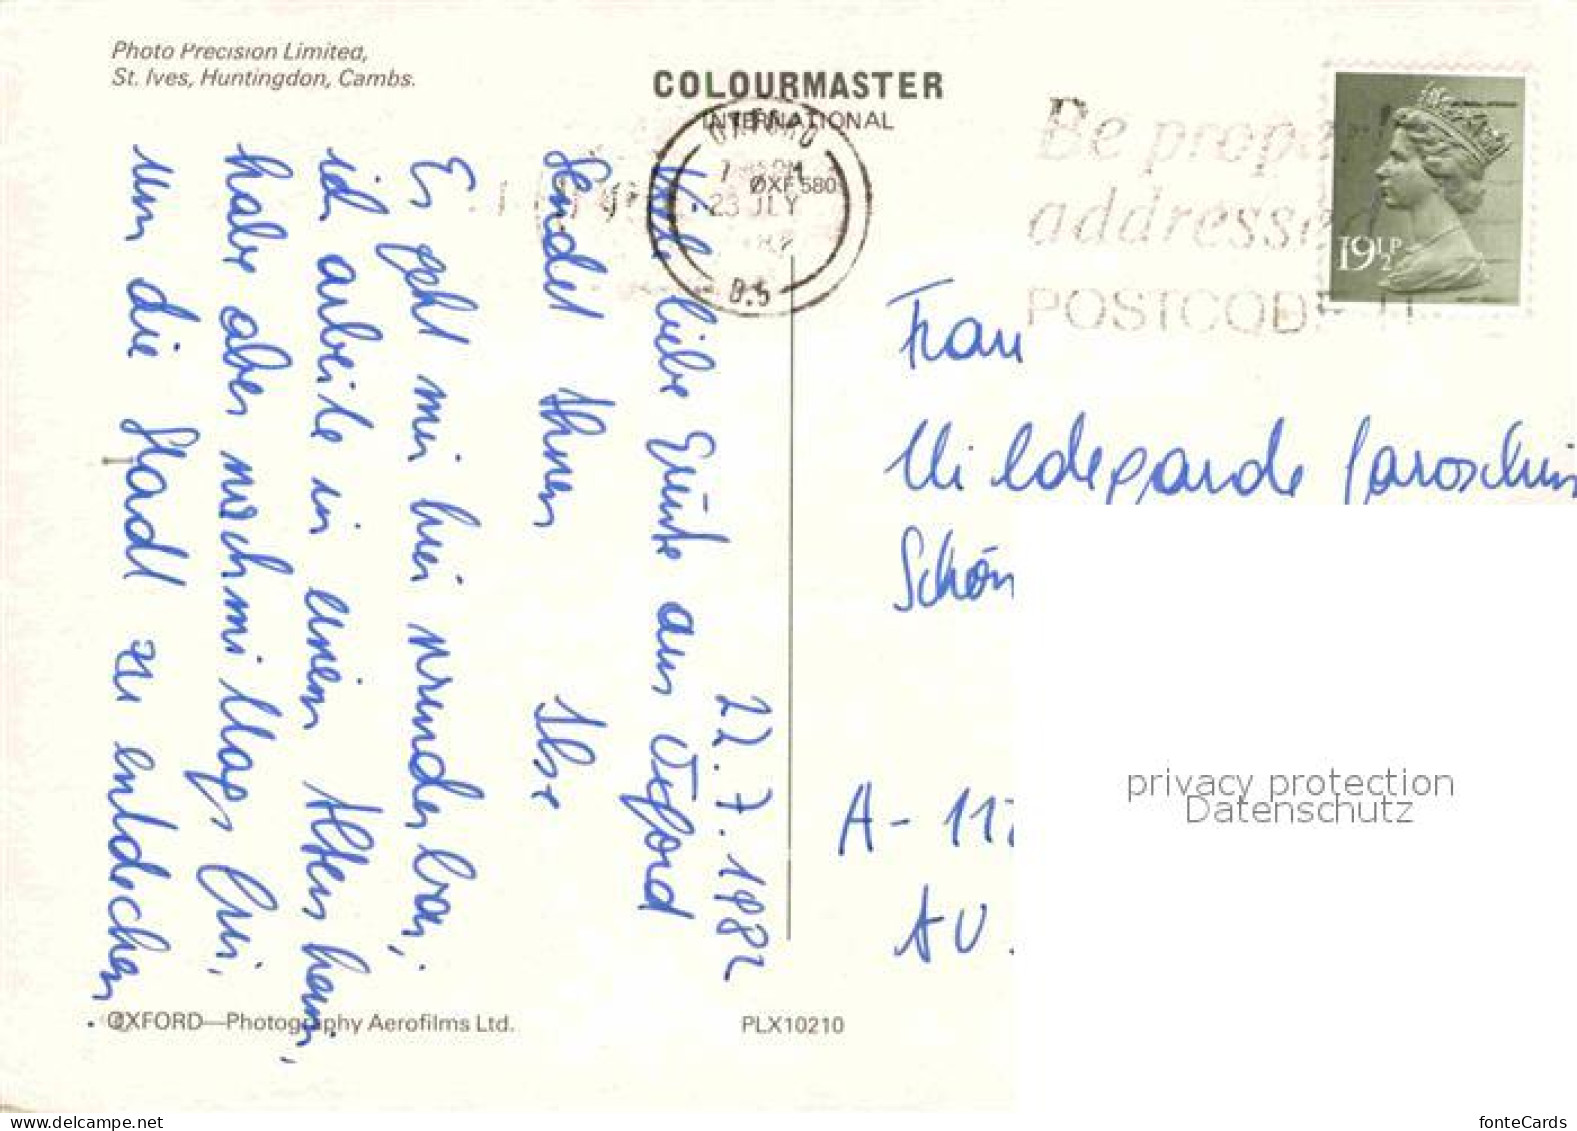 Photo Precision Limited,
St. Ives, Huntingdon, Cambs.
COLOURMASTER
INTERNATIONAL
OXFORD
ØXF580
23 JLY
D.S
Be prope
addresse
POSTCODE IT
19½P
22.7.1982
Viele liebe Grüße aus Oxford
sendet Ihnen Ilse
Es geht mir hier wunderbar,
ich arbeite in einem Altersheim,
habe aber noch mi
um die Stadt zu entdecken
.
Frau
Hildegarde
Schön
A-117
AU.
privacy protection
Datenschutz
©XFORD—Photography Aerofilms Ltd.
PLX10210
www.ansichtskarten-center.de
fonteCards